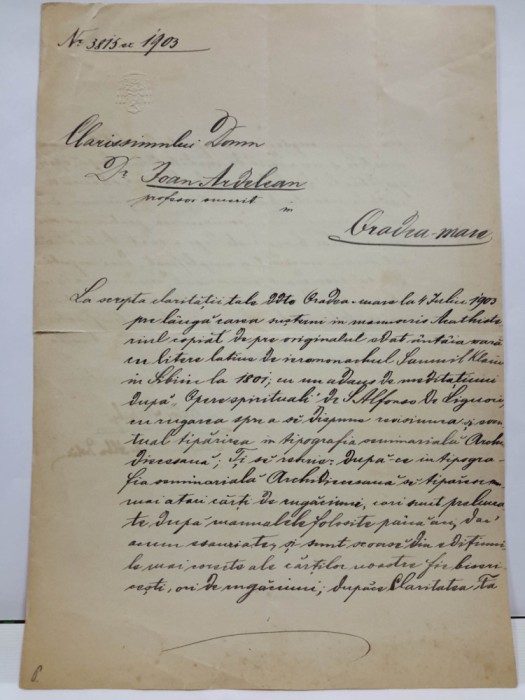 Nr 3815 ex 1903
Clarissimului Domn
Dr Ioan Ardelean
profesor emerit
in
Oradea-mare
La scripta clarității tale ddto Oradea-mare la 4 Iuliu 1903
pre lângă carea susterni in manuscris Acathiste
riul copiat de pre originalul edat ântâia oară
cu litere latine de ieromonachul Samuil Klein
in Sibiiu la 1801; cu un adaus de meditațiuni
după "Opere spirituali" de S. Alfonso De Liguori,
cu rugarea spre a să dispune reasiunea și even
tual tipărirea in tipografia seminarială Archi
diecesană; Ți se rescrie: După ce in tipogra-
fia seminarială Archidiecesană să tipăresc
mai atari cărți de rugăciuni, cari sunt prelucra
te după manualele folosite până au, dar
acum esauriate, și sunt scoase din edițiuni
le mai corecte ale cărților noastre fie biseri
cești, ori de rugăciuni; după ce Claritatea Ta